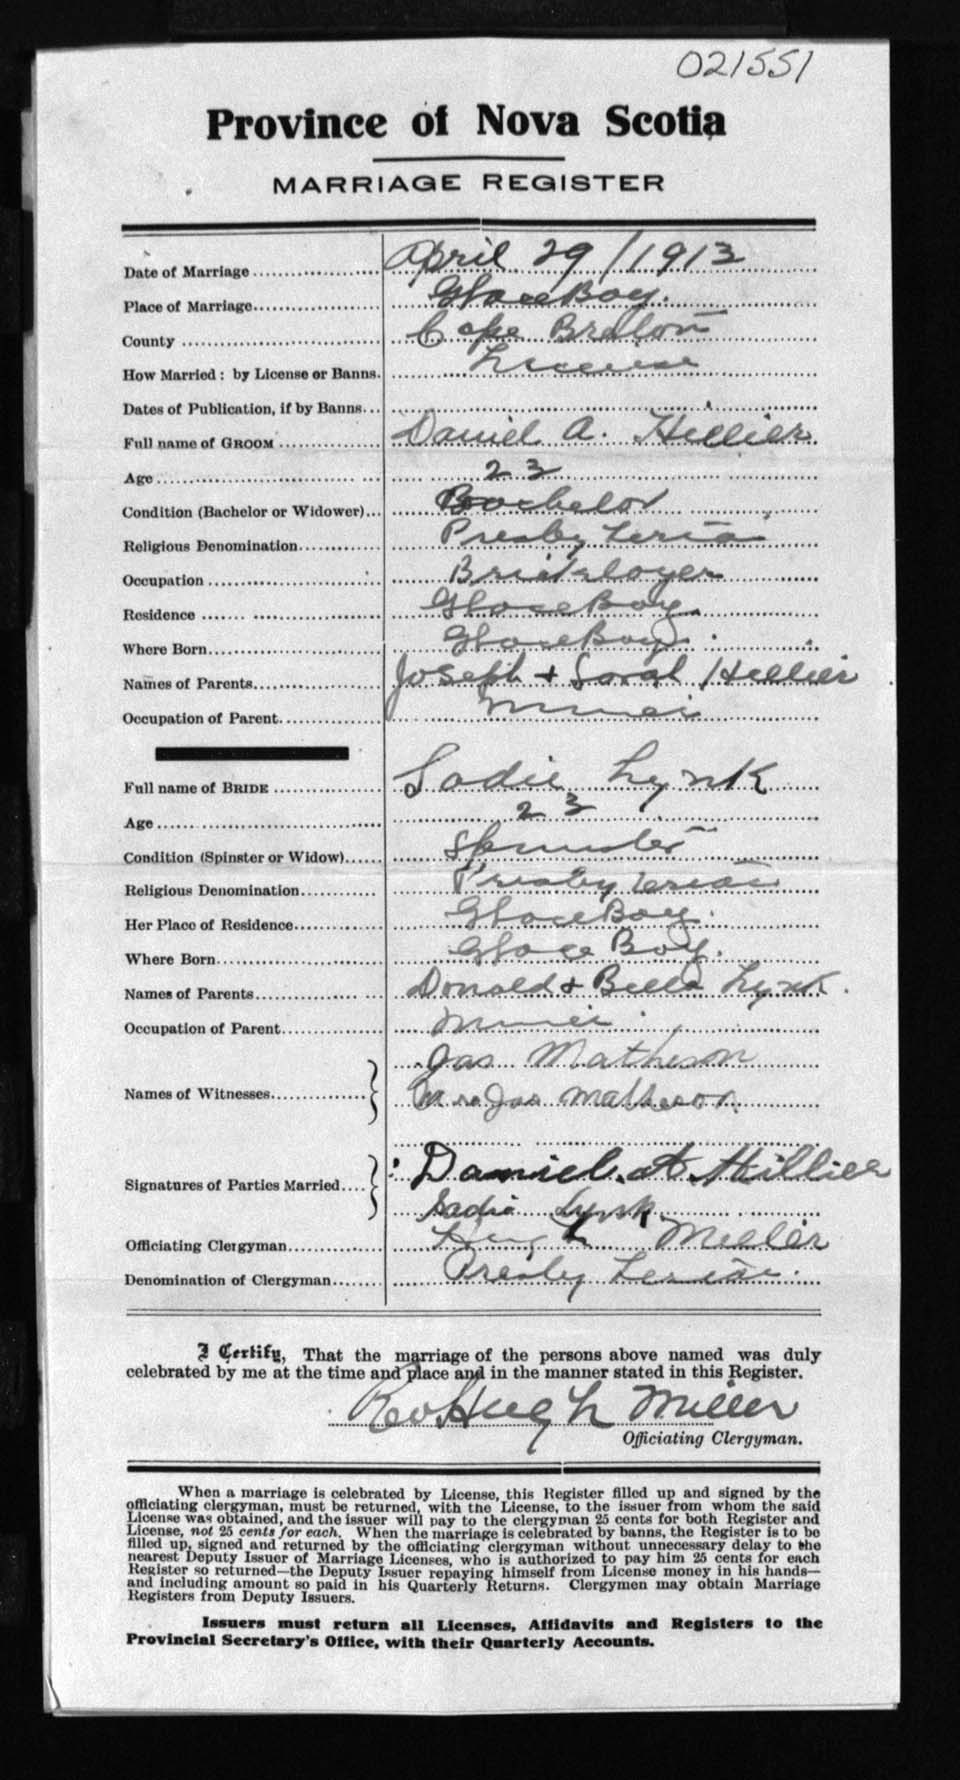 021551
Province of Nova Scotia
MARRIAGE REGISTER
Date of Marriage April 29/1913
Place of Marriage Glace Bay.
County Cape Breton
How Married: by License or Banns. License
Dates of Publication, if by Banns
Full name of GROOM Daniel A. Hillier
Age 23
Condition (Bachelor or Widower) Bachelor
Religious Denomination Presbyterian
Occupation Bricklayer
Residence Glace Bay
Where Born Glace Bay
Names of Parents Joseph + Sarah Hillier
Occupation of Parent Miner
Full name of BRIDE Sadie Lynk
Age 23
Condition (Spinster or Widow) Spinster
Religious Denomination Presbyterian
Her Place of Residence Glace Bay.
Where Born Glace Bay.
Names of Parents Donald + Bella Lynk.
Occupation of Parent Miner
Jas Matheson
Names of Witnesses Mrs Jas Matheson
Daniel A Hillier
Signatures of Parties Married
Sadie Lynk
Officiating Clergyman Hugh Miller
Denomination of Clergyman Presbyterian.
I Certify, That the marriage of the persons above named was duly
celebrated by me at the time and place and in the manner stated in this Register.
Rev Hugh Miller
Officiating Clergyman.
When a marriage is celebrated by License, this Register filled up and signed by the
officiating clergyman, must be returned, with the License, to the issuer from whom the said
License was obtained, and the issuer will pay to the clergyman 25 cents for both Register and
License, not 25 cents for each. When the marriage is celebrated by banns, the Register is to be
filled up, signed and returned by the officiating clergyman without unnecessary delay to the
nearest Deputy Issuer of Marriage Licenses, who is authorized to pay him 25 cents for each
Register so returned—the Deputy Issuer repaying himself from License money in his hands—
and including amount so paid in his Quarterly Returns. Clergymen may obtain Marriage
Registers from Deputy Issuers.
Issuers must return all Licenses, Affidavits and Registers to the
Provincial Secretary's Office, with their Quarterly Accounts.